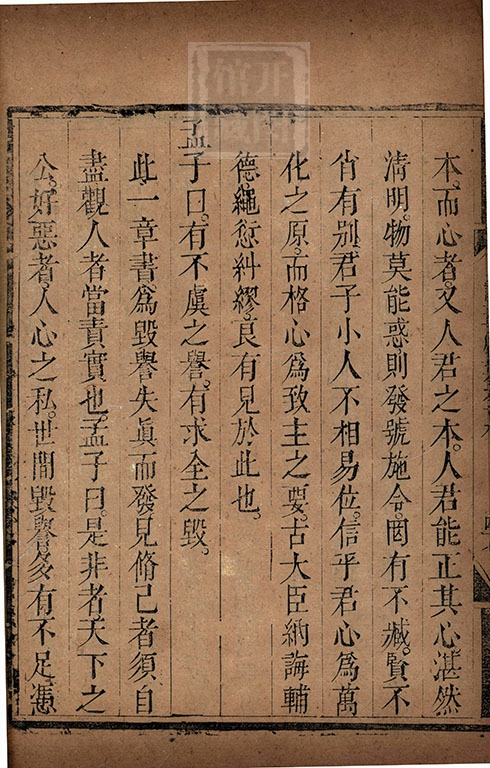 本。而心者。又人君之本。人君能正其心。湛然
清明。物莫能惑。則發號施令。罔有不臧。賢不
肖有别。君子小人不相易位。信乎君心爲萬
化之原。而格心爲致主之要。古大臣納誨輔
德。繩愆糾繆。良有見於此也。
孟子曰。有不虞之譽。有求全之毀。
此一章書。爲毀譽失眞而發。見脩己者須自
盡。觀人者當責實也。孟子曰。是非者。天下之
公。好惡者。人心之私。世間毀譽。多有不足憑